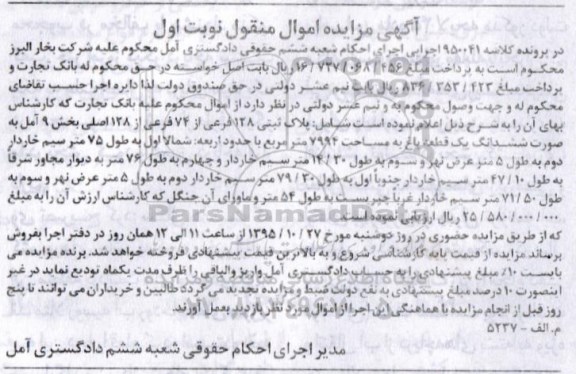 آگهی مزایده اموال منقول نوبت اول
در پرونده کلاسه 950041 اجرایی اجرای احکام شعبه ششم حقوقی دادگستری آمل محکوم علیه شرکت بخار البرز
محکوم است به پرداخت مبلغ 16/727/ ریال بابت اصل خواسته در حق محکوم له بانک تجارت و
پرداخت مبلغ 836/353/423 ریال بابت نیم عشر دولتی در حق صندوق دولت لذا دایره اجرا حسب تقاضای
محکوم له و جهت وصول محکوم به و نیم عشر دولتی در نظر دارد از اموال محکوم علیه بانک تجارت که کارشناس
بهای آن را به شرح ذیل اعلام نموده است شامل: پلاک ثبتی 128 فرعی از 74 فرعی از 128 اصلی بخش 9 آمل به
صورت ششدانگ یک قطعه باغ به مساحت 7994 متر مربع با حدود اربعه: شمالا اول به طول 75 متر سیم خاردار
دوم به طول 5 متر عرض نهر و سوم به طول 14/30 متر سیم خاردار و چهارم به طول 76 متر به دیوار مجاور شرقا
به طول 47/10 متر سیم خاردار جنوبا اول به طول 79/30 متر سیم خاردار دوم به طول 5 متر عرض نهر و سوم به
طول 71/50 متر سیم خاردار غربا چپر بست به طول 54 متر و ماورای آن جنگل که کارشناس ارزش آن را به مبلغ
25/580/000/000 ریال ارزیابی نموده است
که از طریق مزایده حضوری در روز دوشنبه مورخ 1395/10/27 از ساعت 11 الی 12 همان روز در دفتر اجرا بفروش
برساند مزایده از قیمت پایه کارشناسی شروع و به بالاترین قیمت پیشنهادی فروخته خواهد شد. برنده مزایده می
بایست 10٪ مبلغ پیشنهادی را به حساب دادگستری آمل واریز و الباقی را ظرف مدت یکماه تودیع نماید در غیر
اینصورت 10 درصد مبلغ پیشنهادی به نفع دولت ضبط و مزایده تجدید می گردد طالبین و خریداران می توانند تا پنج
روز قبل از انجام مزایده با هماهنگی این اجرا از اموال مورد نظر بازدید بعمل آورند.
م. الف - 5237
مدیر اجرای احکام حقوقی شعبه ششم دادگستری آمل
ParsNamadData